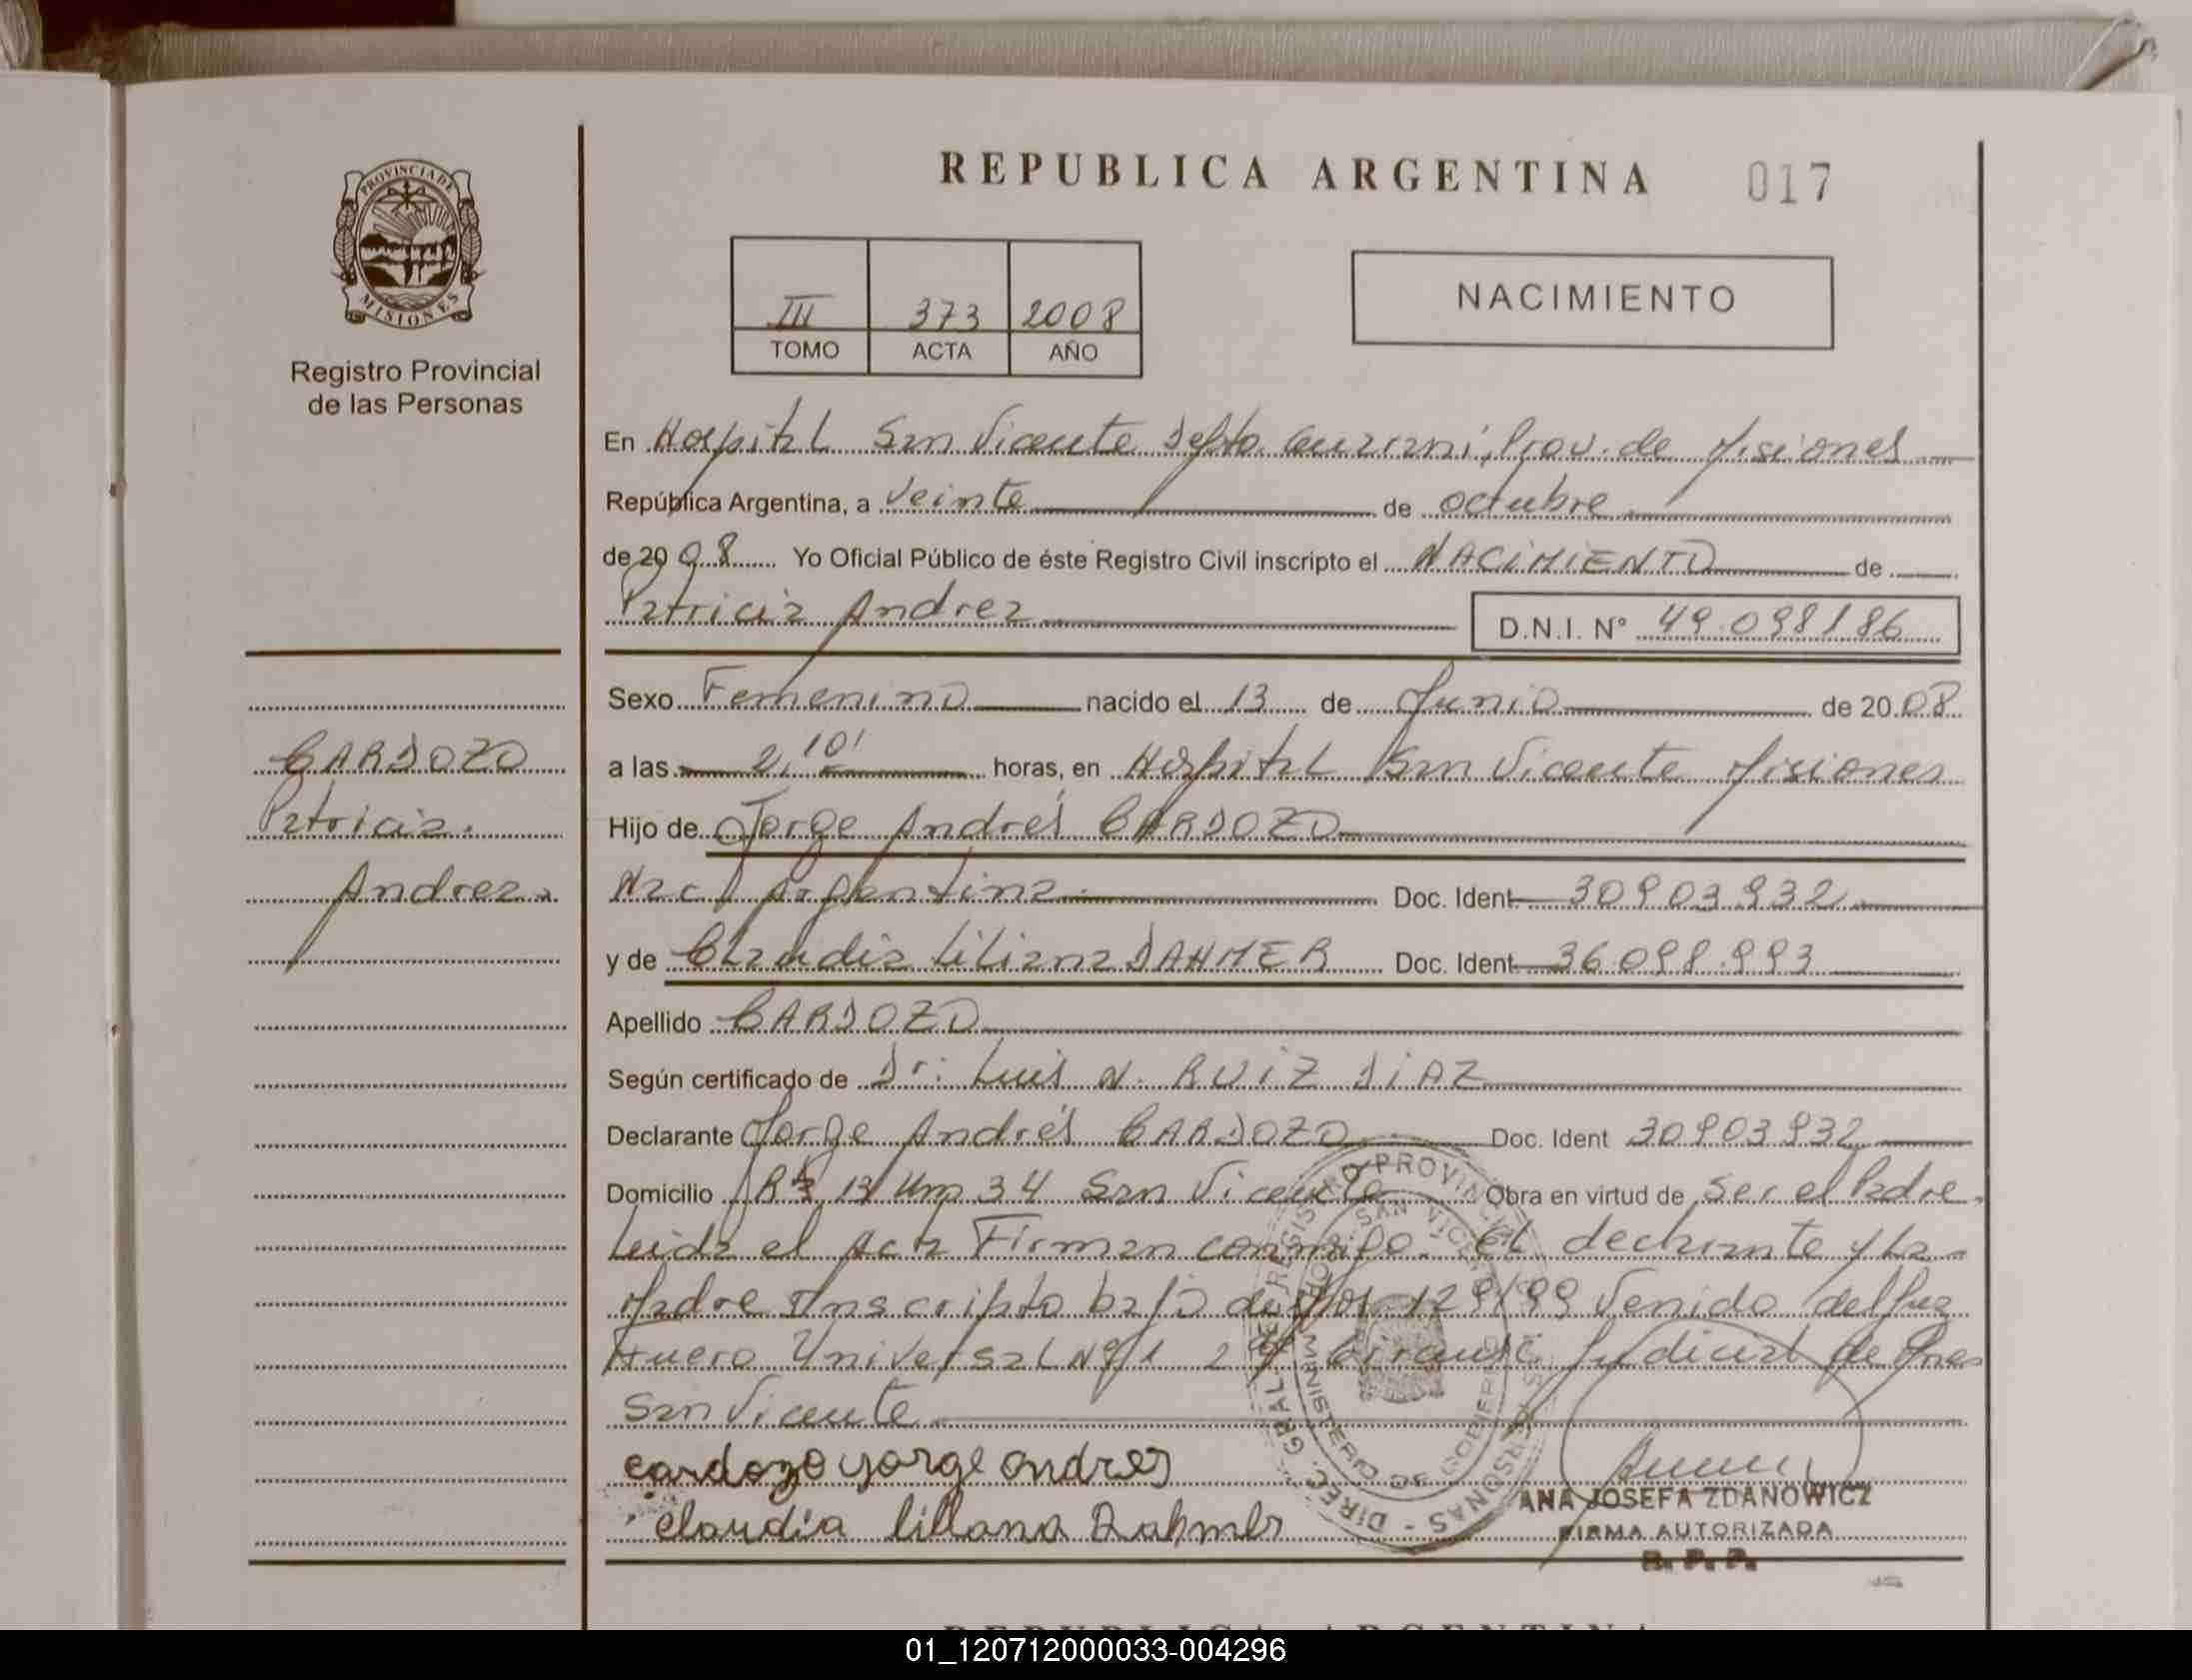 PROVINCIA DE
MISIONES
Registro Provincial
de las Personas
REPUBLICA ARGENTINA 017
III 373 2008
TOMO ACTA AÑO
NACIMIENTO
En Hospital San Vicente Depto. Guarani, Prov. de Misiones
República Argentina, a Veinte de octubre
de 2008 Yo Oficial Público de éste Registro Civil inscripto el NACIMIENTO de
Patricia Andrea D.N.I. N° 49.098186
Sexo Femenino nacido el 13 de Junio de 2008
a las 2,10' horas, en Hospital San Vicente Misiones
CARDOZO
Patricia
Andrea
Hijo de Jorge Andrés CARDOZO
Nac. Argentina Doc. Ident 30903932
y de Claudia Liliana DAHMER Doc. Ident 36.098.993
Apellido CARDOZO
Según certificado de Dr. Luis N. RUIZ DIAZ
Declarante Jorge Andrés CARDOZO Doc. Ident 30903932
Domicilio 13 Km 34 San Vicente Obra en virtud de ser el Padre,
Leida el Acta Firman conmigo. El declarante y La
Madre Inscripto bajo 129/99 Venido del Juz
Fuero Universal Nº 1 Judicial de
San Vicente
cardozo yorge andres
claudia lillana Dahmer
DIREC. GRAL. DEL REGISTRO PROVINCIAL DE LAS PERSONAS
MINISTERIO DE GOBIERNO
SAN VICENTE
ANA JOSEFA ZDANOWICZ
FIRMA AUTORIZADA
R. P. P.
REPUBLICA ARGENTINA
01_120712000033-004296